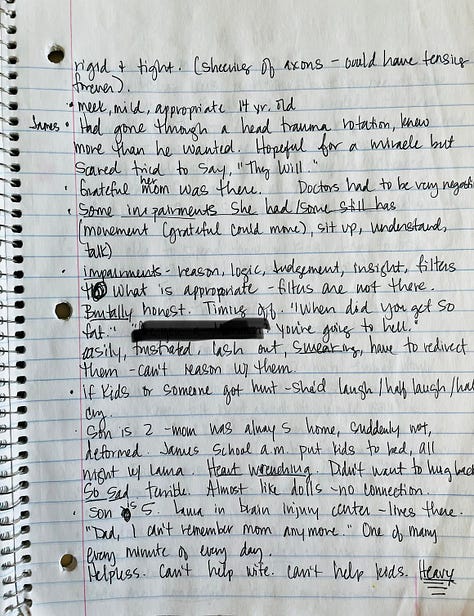 rigid & tight. (shearing of axons - could have tensing
forever).
• meek, mild, appropriate 14 yr. old
James • Had gone through a head trauma rotation, knew
more than he wanted. Hopeful for a miracle but
scared tried to say, "Thy Will."
• Grateful her mom was there. Doctors had to be very negati
• Some impairments she had/some still has
(movement (grateful could move), sit up, understand,
talk)
• impairments - reason, logic, judgement, insight, filters
to what is appropriate - filters are not there.
Brutally honest. Timing off. "When did you get so
fat." " you're going to hell."
easily, frustrated, lash out, swearing, have to redirect
them - can't reason w/ them.
• if kids or someone got hurt - she'd laugh/half laugh/hal
cry.
• Son is 2 - mom was always home, suddenly not,
deformed. James School a.m. put kids to bed, all
night w/ Laura. Heart wrenching. Didn't want to hug back
So sad terrible. Almost like dolls - no connection.
• Son is 5. Laura in brain injury center - lives there.
"Dad, I can't remember mom anymore." One of many
every minute of every day.
Helpless. Can't help wife. can't help kids. Heavy